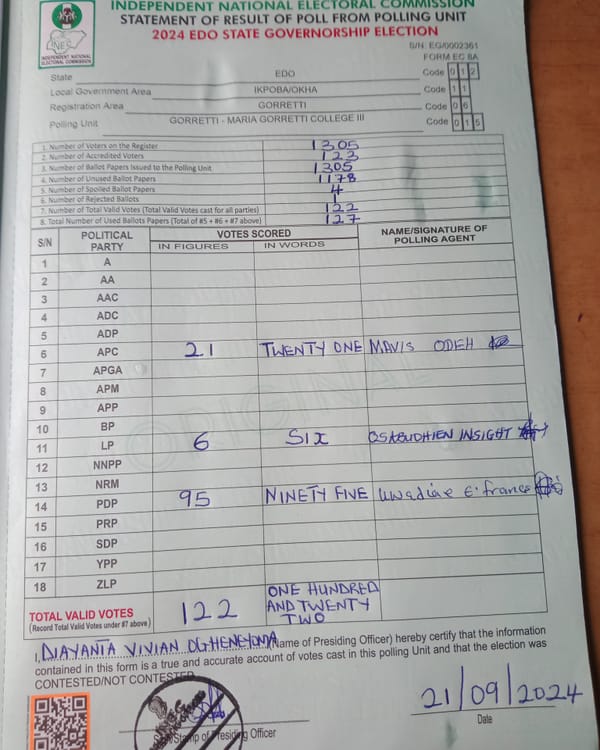 INDEPENDENT NATIONAL ELECTORAL COMMISSION
STATEMENT OF RESULT OF POLL FROM POLLING UNIT
2024 EDO STATE GOVERNORSHIP ELECTION
INEC
INDEPENDENT NATIONAL ELECTORAL COMMISSION
S/N: EG/0002361
FORM EC 8A
State EDO Code 0 1 2
Local Government Area IKPOBA/OKHA Code 1 1
Registration Area GORRETTI Code 0 6
Polling Unit GORRETTI - MARIA GORRETTI COLLEGE III Code 0 1 5
1. Number of Voters on the Register 1305
2. Number of Accredited Voters 123
3. Number of Ballot Papers Issued to the Polling Unit 1305
4. Number of Unused Ballot Papers 1178
5. Number of Spoiled Ballot Papers 4
6. Number of Rejected Ballots 1
7. Number of Total Valid Votes (Total Valid Votes cast for all parties) 122
8. Total Number of Used Ballots Papers (Total of #5 + #6 + #7 above) 127
S/N POLITICAL PARTY VOTES SCORED NAME/SIGNATURE OF POLLING AGENT
IN FIGURES IN WORDS
1 A
2 AA
3 AAC
4 ADC
5 ADP
6 APC 21 TWENTY ONE MAVIS ODEH
7 APGA
8 APM
9 APP
10 BP
11 LP 6 SIX OSABUOHIEN INSIGHT
12 NNPP
13 NRM
14 PDP 95 NINETY FIVE E. frances
15 PRP
16 SDP
17 YPP
18 ZLP
TOTAL VALID VOTES 122 ONE HUNDRED AND TWENTY TWO
(Record Total Valid Votes under #7 above)
ORIGINAL
I, VIVIAN OGHENEYOMA (Name of Presiding Officer) hereby certify that the information
contained in this form is a true and accurate account of votes cast in this polling Unit and that the election was
CONTESTED/NOT CONTESTED
21/09/2024
Stamp of Presiding Officer
Date